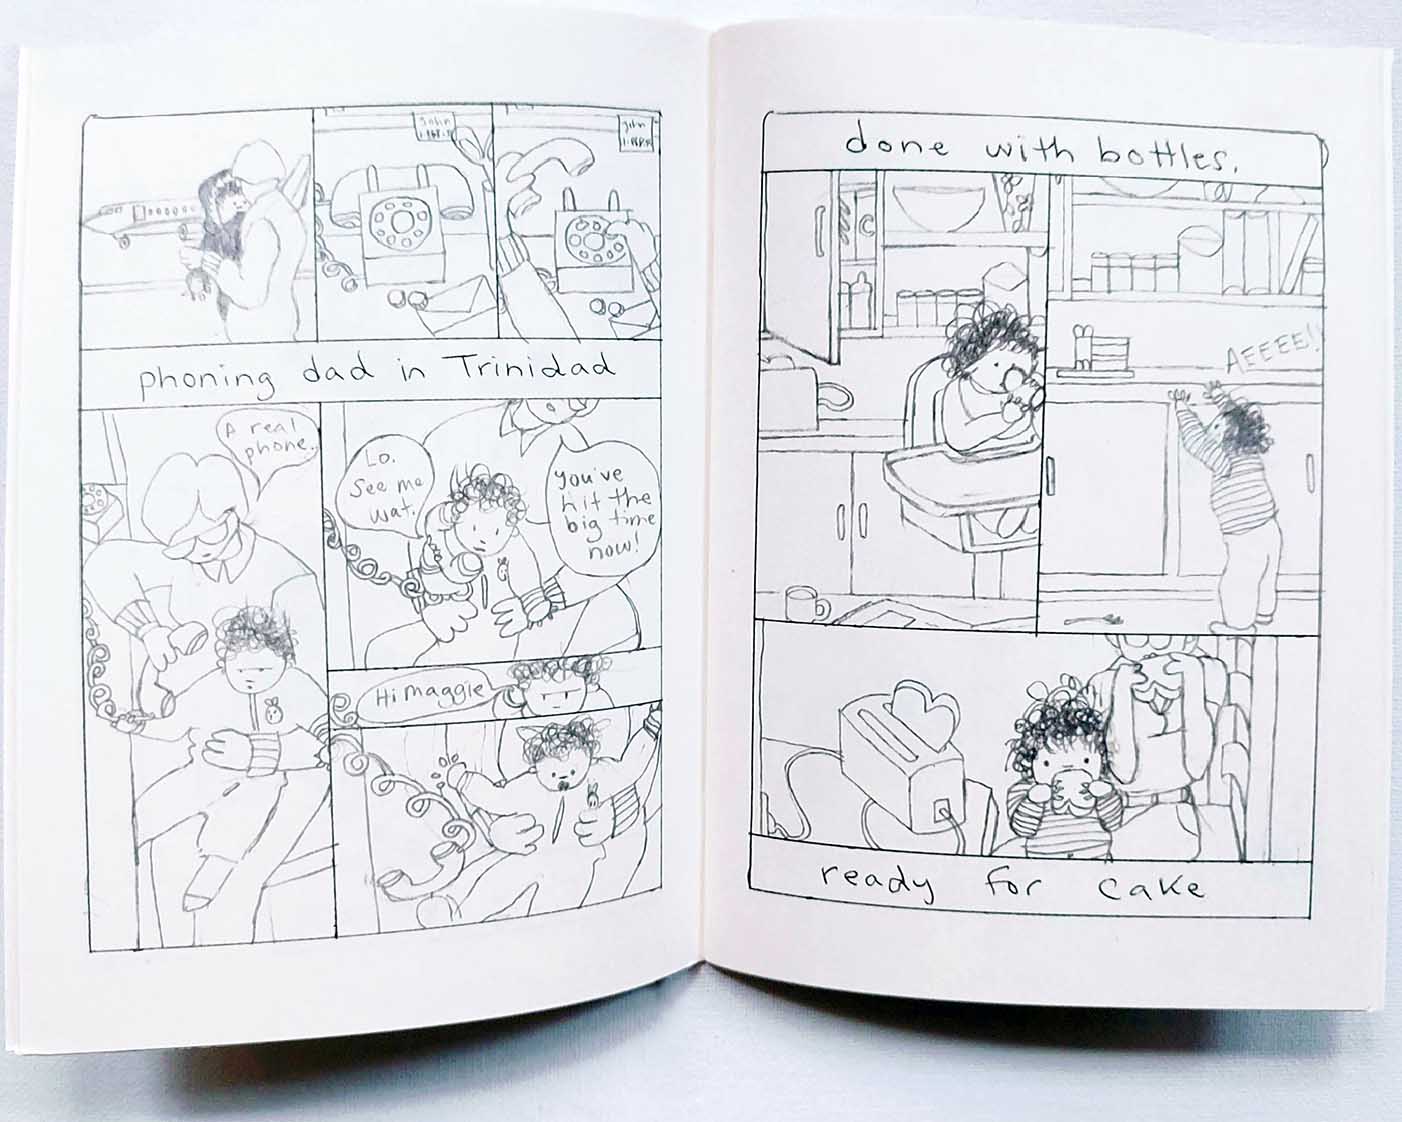 John
John
phoning dad in Trinidad
A real
phone.
Lo.
See me
wat.
You've
hit the
big time
now!
Hi maggie
done with bottles.
AEEEE!!
ready for cake